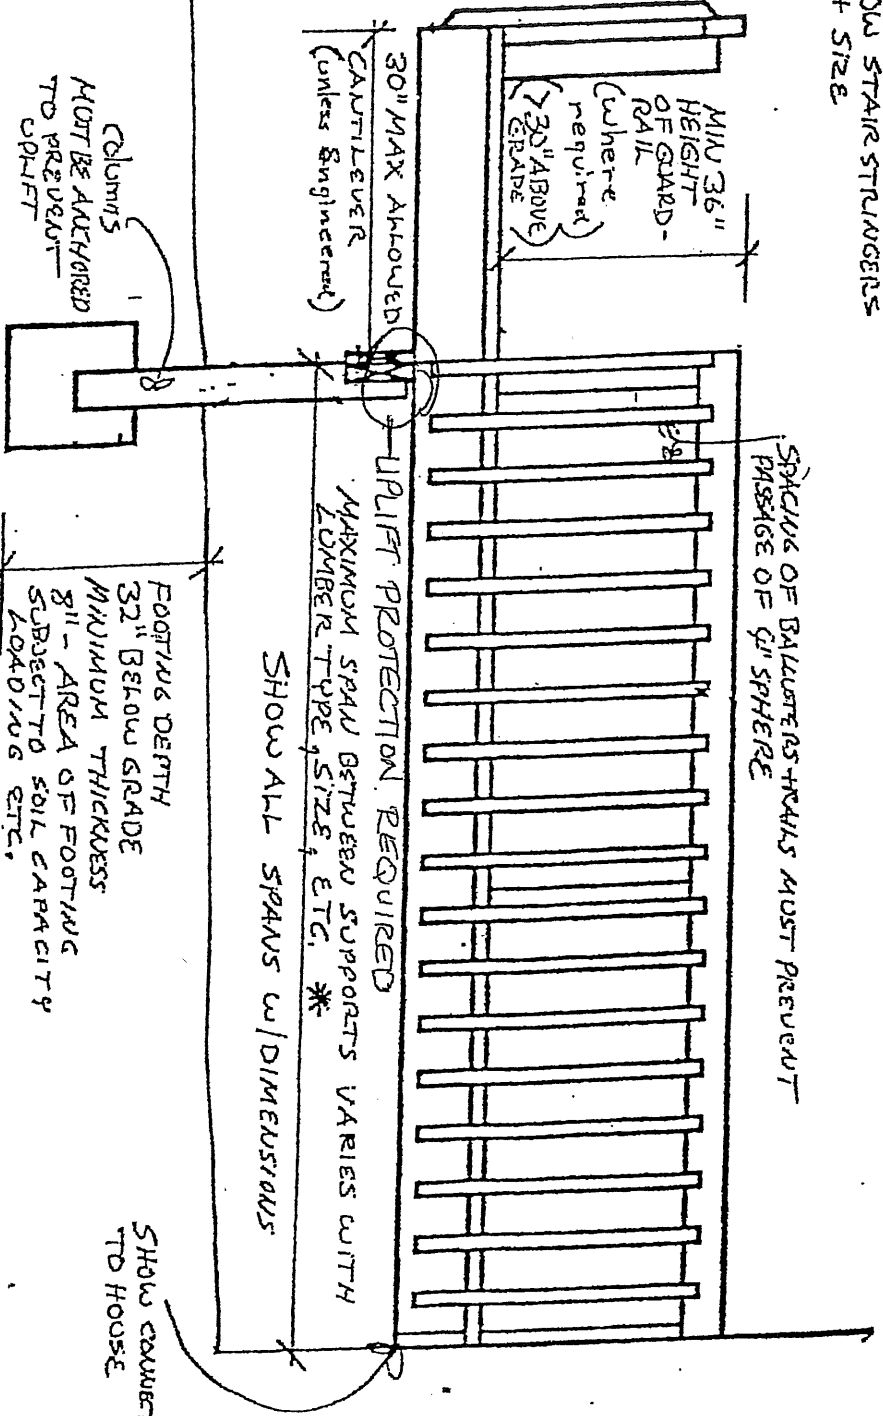 OW STAIR STRINGERS
+ SIZE
MIN 36"
HEIGHT
OF GUARD-
RAIL
(where
required)
(>30" ABOVE
GRADE)
SPACING OF BALLUSTERS + RAILS MUST PREVENT
PASSAGE OF 4" SPHERE
30" MAX ALLOWED
CANTILEVER
(unless Engineered)
UPLIFT PROTECTION REQUIRED
MAXIMUM SPAN BETWEEN SUPPORTS VARIES WITH
LUMBER TYPE, SIZE, ETC. *
SHOW ALL SPANS W/DIMENSIONS
Columns
MUST BE ANCHORED
TO PREVENT
UPLIFT
FOOTING DEPTH
32" BELOW GRADE
MINIMUM THICKNESS
8" - AREA OF FOOTING
SUBJECT TO SOIL CAPACITY
LOADING ETC.
SHOW CONNEC
TO HOUSE